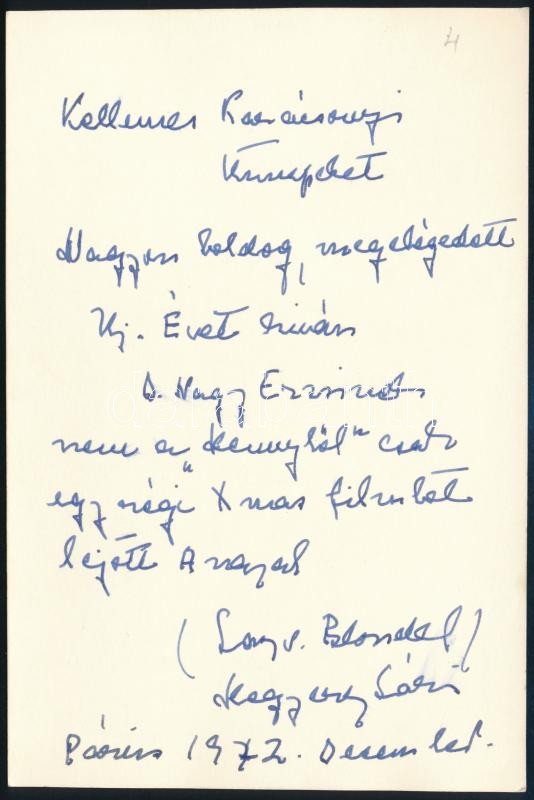 4
Kellemes Karácsonyi
Ünnepeket
Nagyon boldog, megelégedett
Uj. Évet kiván
D. Nagy
nem a "Mennyből" csak
egy régi Xmas filmből
lejött Angyal
( Blondel)
Megyery Sári
Páris 1972. December.